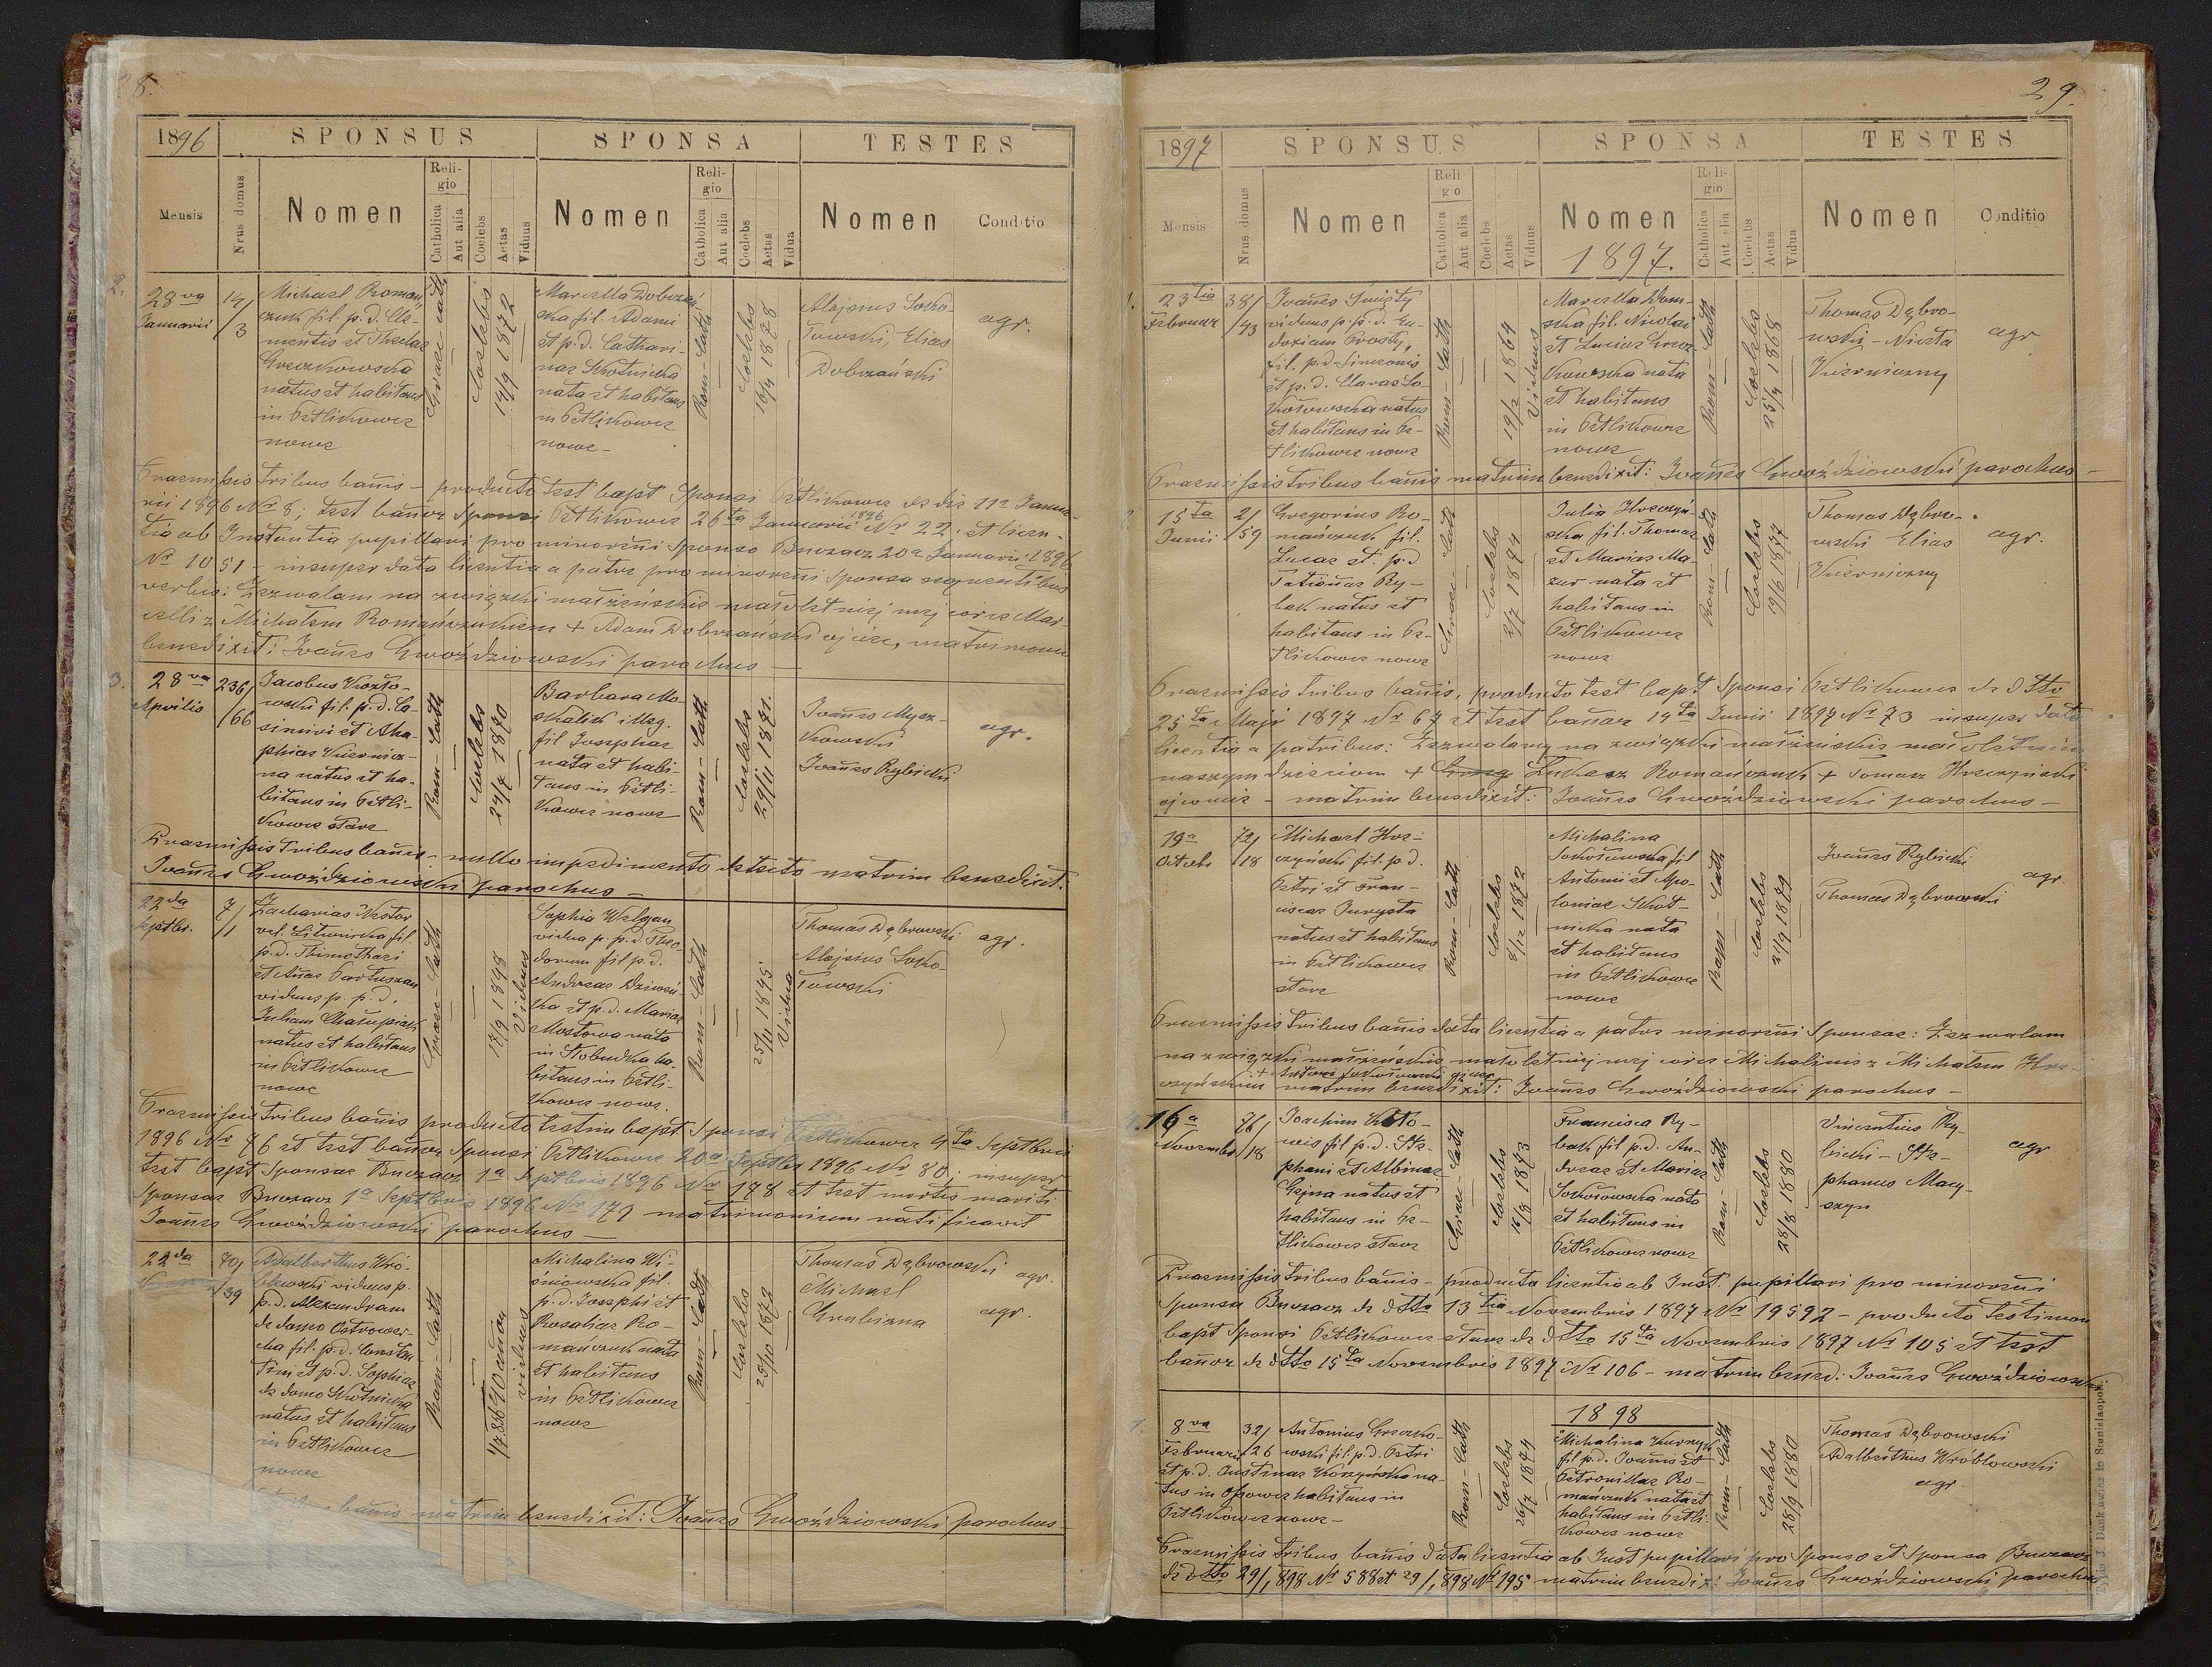 28.
1896
SPONSUS
SPONSA
TESTES
Mensis
Nrus domus
Nomen
Religio
Catholica
Aut alia
Coelebs
Aetas
Viduus
Nomen
Religio
Catholica
Aut alia
Coelebs
Aetas
Vidua
Nomen
Conditio
2.
28va
Januarii
14/
/3
Michael Roman
czuk fil. p.d. Cle-
mentis et Theclae
Greczkowska
natus et habitans
in Petlikowce
nowe
Graeci cath
Coelebs
14/9 1872
Marcella Dobrzań
ska fil. Adami
et p.d. Cathari-
nae Skotnicka
nata et habitans
in Petlikowce
nowe-
Rom-Cath
Coelebs
16/4 1878
Alojsius Soko-
łowski, Elias
Dobrzański
agr.
Praemissis tribus banis - producto test bapt Sponsi Petlikowce de die 11a Janua-
rii 1896 Nr 8; test banor Sponsi Petlikowce 26ta Januarii 1896 Nr 22; et licen-
tia ab Instantia pupillari pro minoreni Sponso Buczacz 20a Januarii 1896
Nr 1051 - insuper data licentia a patre pro minoreni Sponsa sequentibus
verbis: Zezwalam na związki małżeńskie małoletniej mej córce Mar-
celli z Michałem Romańczukiem + Adam Dobrzański ojciec, matrimonium
benedixit: Joanes Gwoździowski parochus -
3.
28va
Aprilis
236/
/66
Jacobus Kozło-
wski fil. p.d. Ca-
simiri et Aha-
phiae Kiernicz-
na natus et ha-
bitans in Petli-
kowce stare
Rom-Cath
Coelebs
24/7 1870
Barbara Mo-
skalik illeg.
fil Josephae
nata et habi-
tans in Petli-
kowce nowe
Rom-Cath
Coelebs
29/11 1871.
Joanes Mysz-
kowski
Joanes Rybicki
agr.
Praemissis tribus banis - nullo impedimento detecto matrim benedixit.
Joanes Gwoździowski parochus -
22da
Septbr.
7/
/1
Zacharias Nestor
vel. Litwinska fil.
p.d. Thimothaei
et Anae Partuszan
viduus p. p.d.
Juliam Chałupiak
natus et habitans
in Petlikowce
nowe
Graec-Cath
17/9 1848
Viduus
Sophia Welgan
vidua p. p.d. Theo-
dorum fil p.d.
Andreae Dziwen-
ka et p.d. Mariae
Mostowa nata
in Słobudka ha-
bitans in Petli-
kowce nowe.
Rom-Cath
25/11 1845
Vidua
Thomas Dąbrowski
Alojsius Soko-
łowski
agr.
Praemissis tribus banis producto testim bapt Sponsi Petlikowce 4ta Septbris
1896 Nr 76 et test banor Sponsi Petlikowce 20a Septbr 1896 Nr 80; insuper
test bapt Sponsae Buczacz 1a Septbris 1896 Nr 178 et test mortis mariti
Sponsae Buczacz 1a Septbris 1896 Nr 179 matrimonium ratificavit
Joanes Gwoździowski parochus -
22da
70/
/39
Adalberthus Wró-
blewski viduus p.
p.d. Alexandram
de domo Ostrower-
cha fil. p.d. Constan
tini et p.d. Sophiae
de domo Skotnicka
natus et habitans
in Petlikowce
nowe
Rom-Cath
40 anor
viduus
Michalina Wi-
śniowska fil.
p.d. Josephi et
Rosaliae Ro-
mańczuk nata
et habitans
in Petlikowce
nowe
Rom-Cath
Coelebs
23/10 1872
Thomas Dąbrowski
Michael
Grabizna
agr.
agr.
banis matrim benedixit: Joanes Gwoździowski parochus -
29.
1897
SPONSUS
SPONSA
TESTES
Mensis
Nrus domus
Nomen
Religio
Catholica
Aut alia
Coelebs
Aetas
Viduus
Nomen
1897.
Religio
Catholica
Aut alia
Coelebs
Aetas
Vidua
Nomen
Conditio
1.
23tia
Februar
38/
/43
Joanes Smisty
viduus p.p.d. Eu-
doxiam Prosty,
fil. p.d. Simeonis
et p.d. Claras So-
kołowska natus
et habitans in Pe-
tlikowce nowe
Rom-Cath
19/2 1864
Viduus
Marcella Dum-
ska fil. Nicolai
et Luciae Grecz
kowska nata
et habitans
in Petlikowce
nowe
Rom-Cath
Coelebs
25/4 1868
Thomas Dąbro-
wski - Niceta
Kierniczny
agr
Praemissis tribus banis matrim benedixit: Joanes Gwoździowski parochus -
15ta
Junii
2/
/59
Gregorius Ro-
mańczuk fil.
Lucae et p.d
Tatianae Ry-
bak natus et
habitans in Pe-
tlikowce nowe
Graec-Cath
Coelebs
2/7 1874
Julia Hreczyń-
ska fil. Thomae
et Mariae Ma-
zur nata et
habitans in
Petlikowce
nowe
Rom-Cath
Coelebs
9/6 1877
Thomas Dąbro-
wski Elias
Kierniczny
agr.
Praemissis tribus banis, producto test bapt Sponsi Petlikowce de dtto
25ta Maji 1897 Nr 67 et test banor 14ta Junii 1897 Nr 73 insuper data
licentia a patribus: Zezwalamy na związki małżeńskie małoletnim
naszym dzieciom + Łukasz Romańczuk + Tomasz Hreczyński
ojcowie - matrim benedixit: Joanes Gwoździowski parochus -
19a
Octobr
72/
/18
Michael Hre-
czyński fil. p.d.
Petri et Fran-
ciscae Jurysta
natus et habitans
in Petlikowce
stare
Rom-Cath
Coelebs
8/12 1872
Michalina
Sokołowska fil
Antonii et Apo-
loniae Skot-
nicka nata
et habitans
in Petlikowce
nowe
Rom-Cath
Coelebs
21/9 1879
Joanes Rybicki
Thomas Dąbrowski
agr.
Praemissis tribus banis data licentia a patre minoreni Sponsae: Zezwalam
na związki małżeńskie małoletniej mej córce Michalinie z Michałem Hre-
+ Antoni Sokołowski ojciec
czyńskim matrim benedixit: Joanes Gwoździowski parochus -
4.
16a
Novembr
76/
/18
Joachim Kto-
wis fil p.d. Ste-
phani et Albinae
Gejna natus et
habitans in Pe-
tlikowce stare
Graec-Cath
Coelebs
16/8 1873
Francisca Ry-
bak fil p.d. An-
dreae et Mariae
Sokołowska nata
et habitans in
Petlikowce nowe
Rom-Cath
Coelebs
28/8 1880
Vincentius Ry-
bicki - Ste-
phanus Macy-
szyn
agr
Praemissis tribus banis - producta licentia ab Inst. pupillari pro minoreni
Sponsa Buczacz de dtto 13tia Novembris 1897 Nr 19592 - producto testimon
bapt Sponsi Petlikowce stare de dtto 15ta Novembris 1897 Nr 105 et test
banor de dtto 15ta Novembris 1897 Nr 106 - matrim bened: Joanes Gwoździowski
1898
1.
8va
Februarii
32/
/26
Antonius Greczko-
wski fil. p.d. Petri
et p.d. Justinae Koszyńska na-
tus in Ossowce habitans in
Petlikowce nowe -
Rom-Cath
Coelebs
26/7 1874
Michalina Kurnyk
fil p.d. Joanis et
Petronillae Ro-
mańczuk nata et
habitans in Petli-
kowce nowe
Rom-Cath
Coelebs
28/9 1880
Thomas Dąbrowski
Adalberthus Wróblowski
agr.
Praemissis tribus banis data licentia ab Inst pupillari pro Sponso et Sponsa Buczacz
de dtto 29/1 898 Nr 588 et 29/1 898 Nr 195 matrim benedix: Joanes Gwoździowski parochus
J. Dankiewicz in Stanislaopoli.